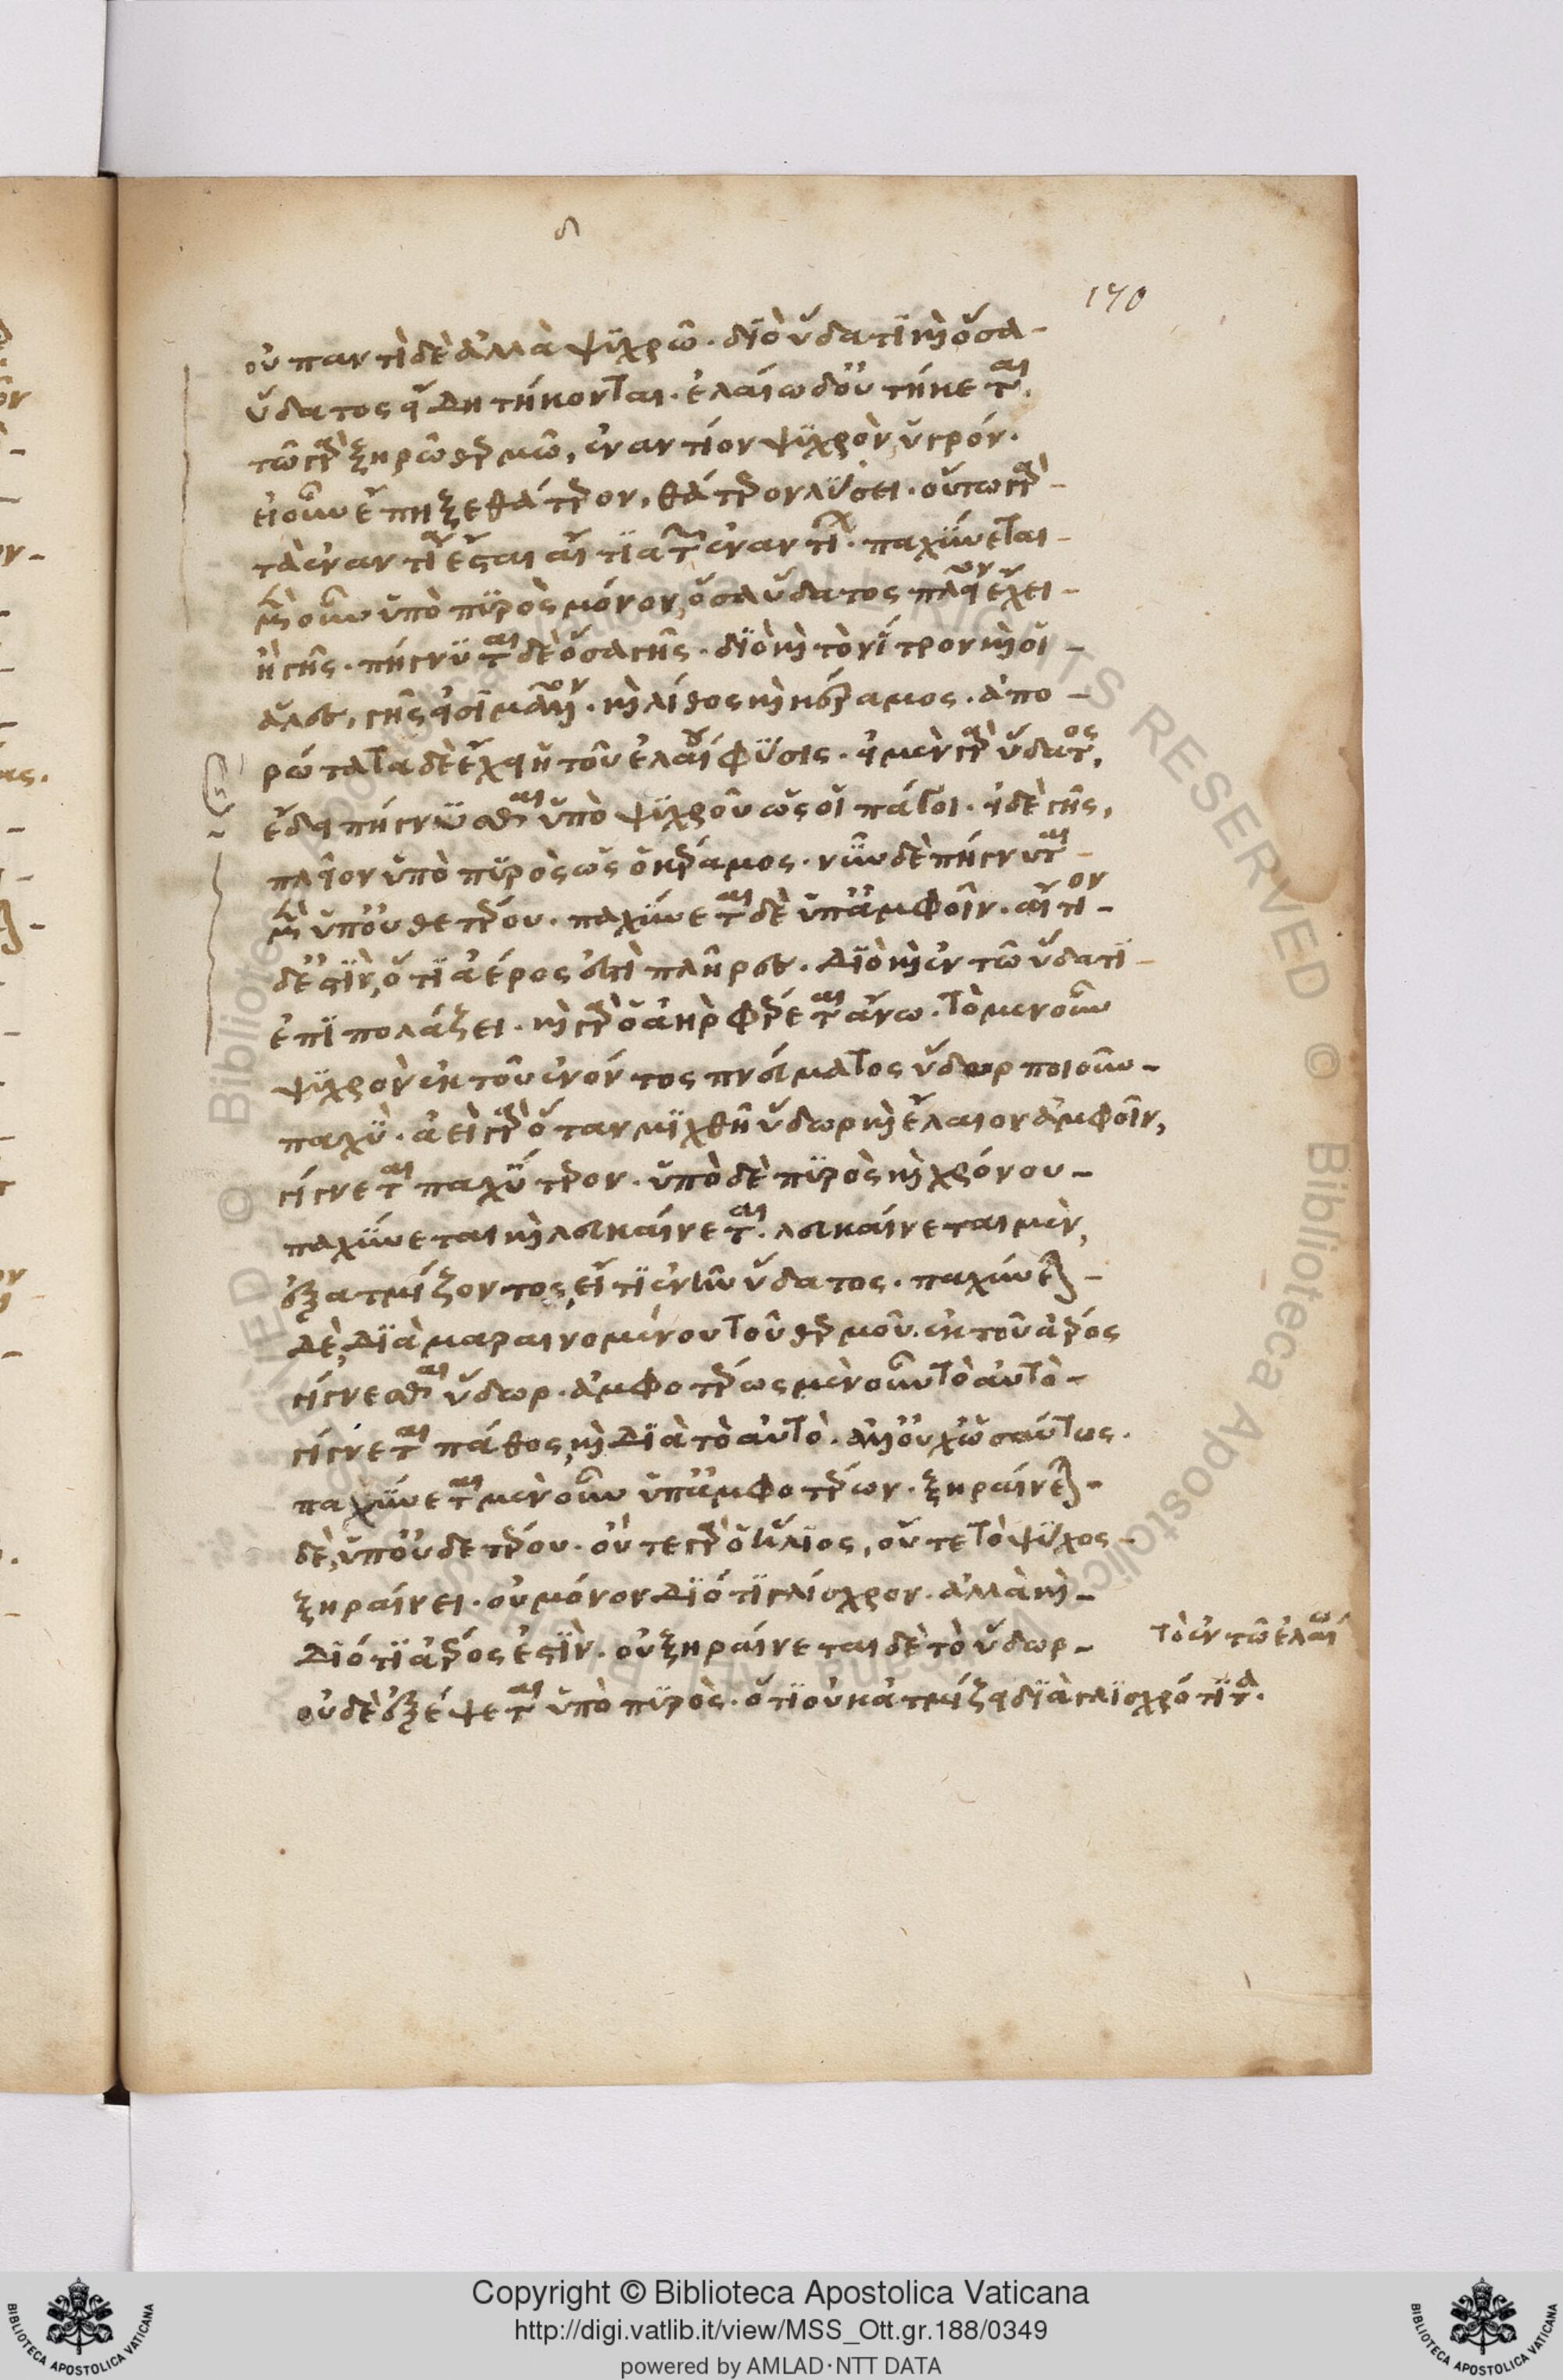 δ
170
οὐ παντὶ δὲ ἀλλὰ ψυχρῶ· διὸ ὕδατι καὶ ὅσα
ὕδατος εἴδη τήκονται· ἐλαίω δ' οὐ τήκεται.
τῶ γὰρ ξηρῶ θερμῶ, ἐναντίον ψυχρὸν ὑγρόν·
εἰ οὖν ἔπηξε θάτερον, θάτερον λύσει· οὕτω γὰρ
τὰ ἐναντία ἔσται αἴτια τῶν ἐναντίων· παχύνεται
μὲν οὖν ὑπὸ πυρὸς μόνον, ὅσα ὕδατος πλεῖον ἔχει
ἢ γῆς· πήγνυται δὲ ὅσα γῆς· διὸ καὶ τὸ νίτρον καὶ οἱ
ἅλες, γῆς εἰσὶ μᾶλλον· καὶ λίθος καὶ κέραμος· ἀπο
ρώτατα δὲ ἔχει ἡ τοῦ ἐλαίου φύσις· εἰ μὲν γὰρ ὕδατος,
ἔδει πήγνυσθαι ὑπὸ ψυχροῦ ὡς οἱ πάγοι· εἰ δὲ γῆς,
πλεῖον ὑπὸ πυρὸς ὡς ὁ κέραμος· νῦν δὲ πήγνυται
μὲν ὑπ' οὐθετέρου· παχύνεται δὲ ὑπ' ἀμφοῖν· αἴτιον
δ' ἐστὶν, ὅτι ἀέρος ἐστὶ πλῆρες· διὸ καὶ ἐν τῶ ὕδατι
ἐπιπολάζει· καὶ γὰρ ὁ ἀὴρ φέρεται ἄνω· τὸ μὲν οὖν
ψυχρὸν ἐκ τοῦ ἐνόντος πνεύματος ὕδωρ ποιοῦν
παχύ· ἀεὶ γὰρ ὅταν μιχθῆ ὕδωρ καὶ ἔλαιον ἀμφοῖν,
γίγνεται παχύτερον· ὑπὸ δὲ πυρὸς καὶ χρόνου
παχύνεται καὶ λευκαίνεται· λευκαίνεται μὲν,
ἐξατμίζοντος, εἴ τι ἐνῆν ὕδατος· παχύνεται
δὲ, διὰ μαραινομένου τοῦ θερμοῦ ἐκ τοῦ ἀέρος
γίγνεσθαι ὕδωρ· ἀμφοτέρως μὲν οὖν τὸ αὐτὸ
γίγνεται πάθος, καὶ διὰ τὸ αὐτὸ· ἀλλ' οὐχ ὡσαύτως·
παχύνεται μὲν οὖν ὑπ' ἀμφοτέρων· ξηραίνεται
δὲ, ὑπ' οὐδετέρου· οὔτε γὰρ ὁ ἥλιος, οὔτε τὸ ψύχος
ξηραίνει· οὐ μόνον διότι γλίσχρον· ἀλλὰ καὶ
διότι ἀέρος ἐστὶν· οὐ ξηραίνεται δὲ τὸ ὕδωρ
τὸ ἐν τῶ ἐλαίω
οὐδὲ ἐξέψεται ὑπὸ πυρὸς· ὅτι οὐκ ἀτμίζει διὰ γλισχρότητα.